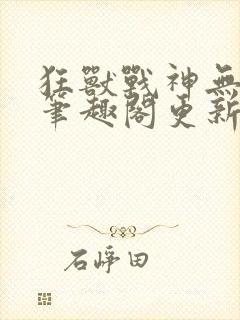 狂獸戰神無
筆趣閣更新
石崢田